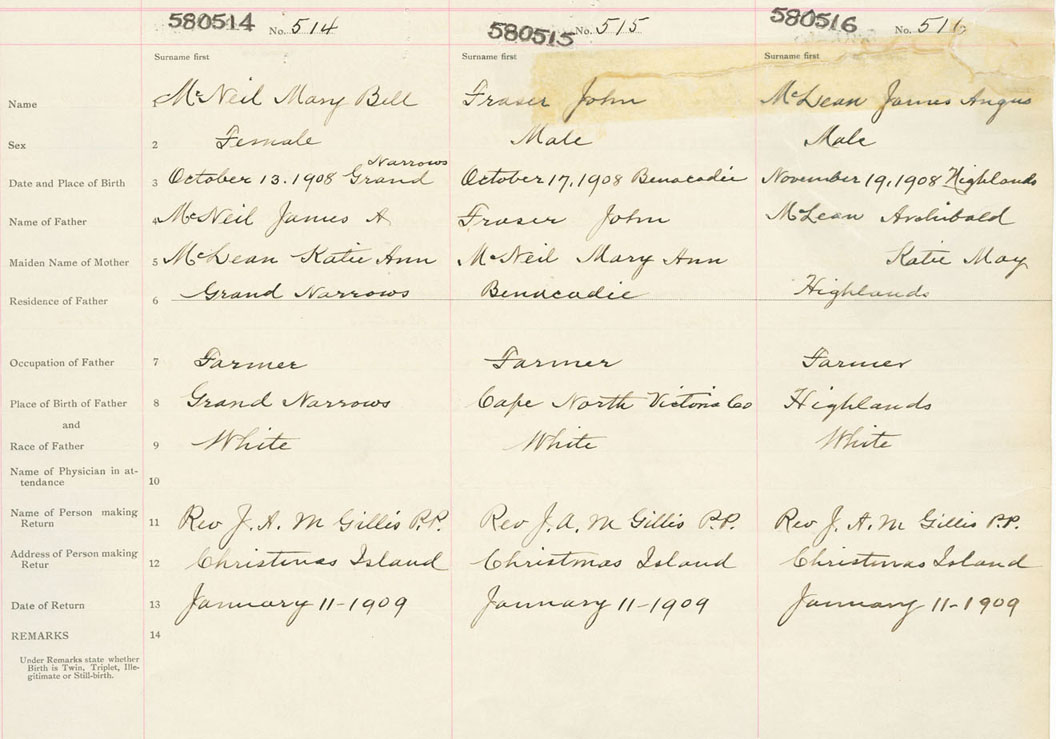 580514 No. 514 580515 No. 515 580516 No. 516
Surname first Surname first Surname first
Name 1 McNeil Mary Bell Fraser John McLean James Angus
Sex 2 Female Male Male
Narrows
Date and Place of Birth 3 October 13.1908 Grand October 17,1908 Benacadie November 19,1908 Highlands
Name of Father 4 McNeil James A Fraser John McLean Archibald
Maiden Name of Mother 5 McLean Katie Ann McNeil Mary Ann Katie May
Residence of Father 6 Grand Narrows Benacadie Highlands
Occupation of Father 7 Farmer Farmer Farmer
Place of Birth of Father 8 Grand Narrows Cape North Victoria Co Highlands
and
Race of Father 9 White White White
Name of Physician in at-
tendance 10
Name of Person making
Return 11 Rev J. A. M Gillis P.P. Rev J. A. M Gillis P.P. Rev J. A. M Gillis P.P.
Address of Person making
Retur 12 Christmas Island Christmas Island Christmas Island
Date of Return 13 January 11-1909 January 11-1909 January 11-1909
REMARKS 14
Under Remarks state whether
Birth is Twin, Triplet, Ille-
gitimate or Still-birth.